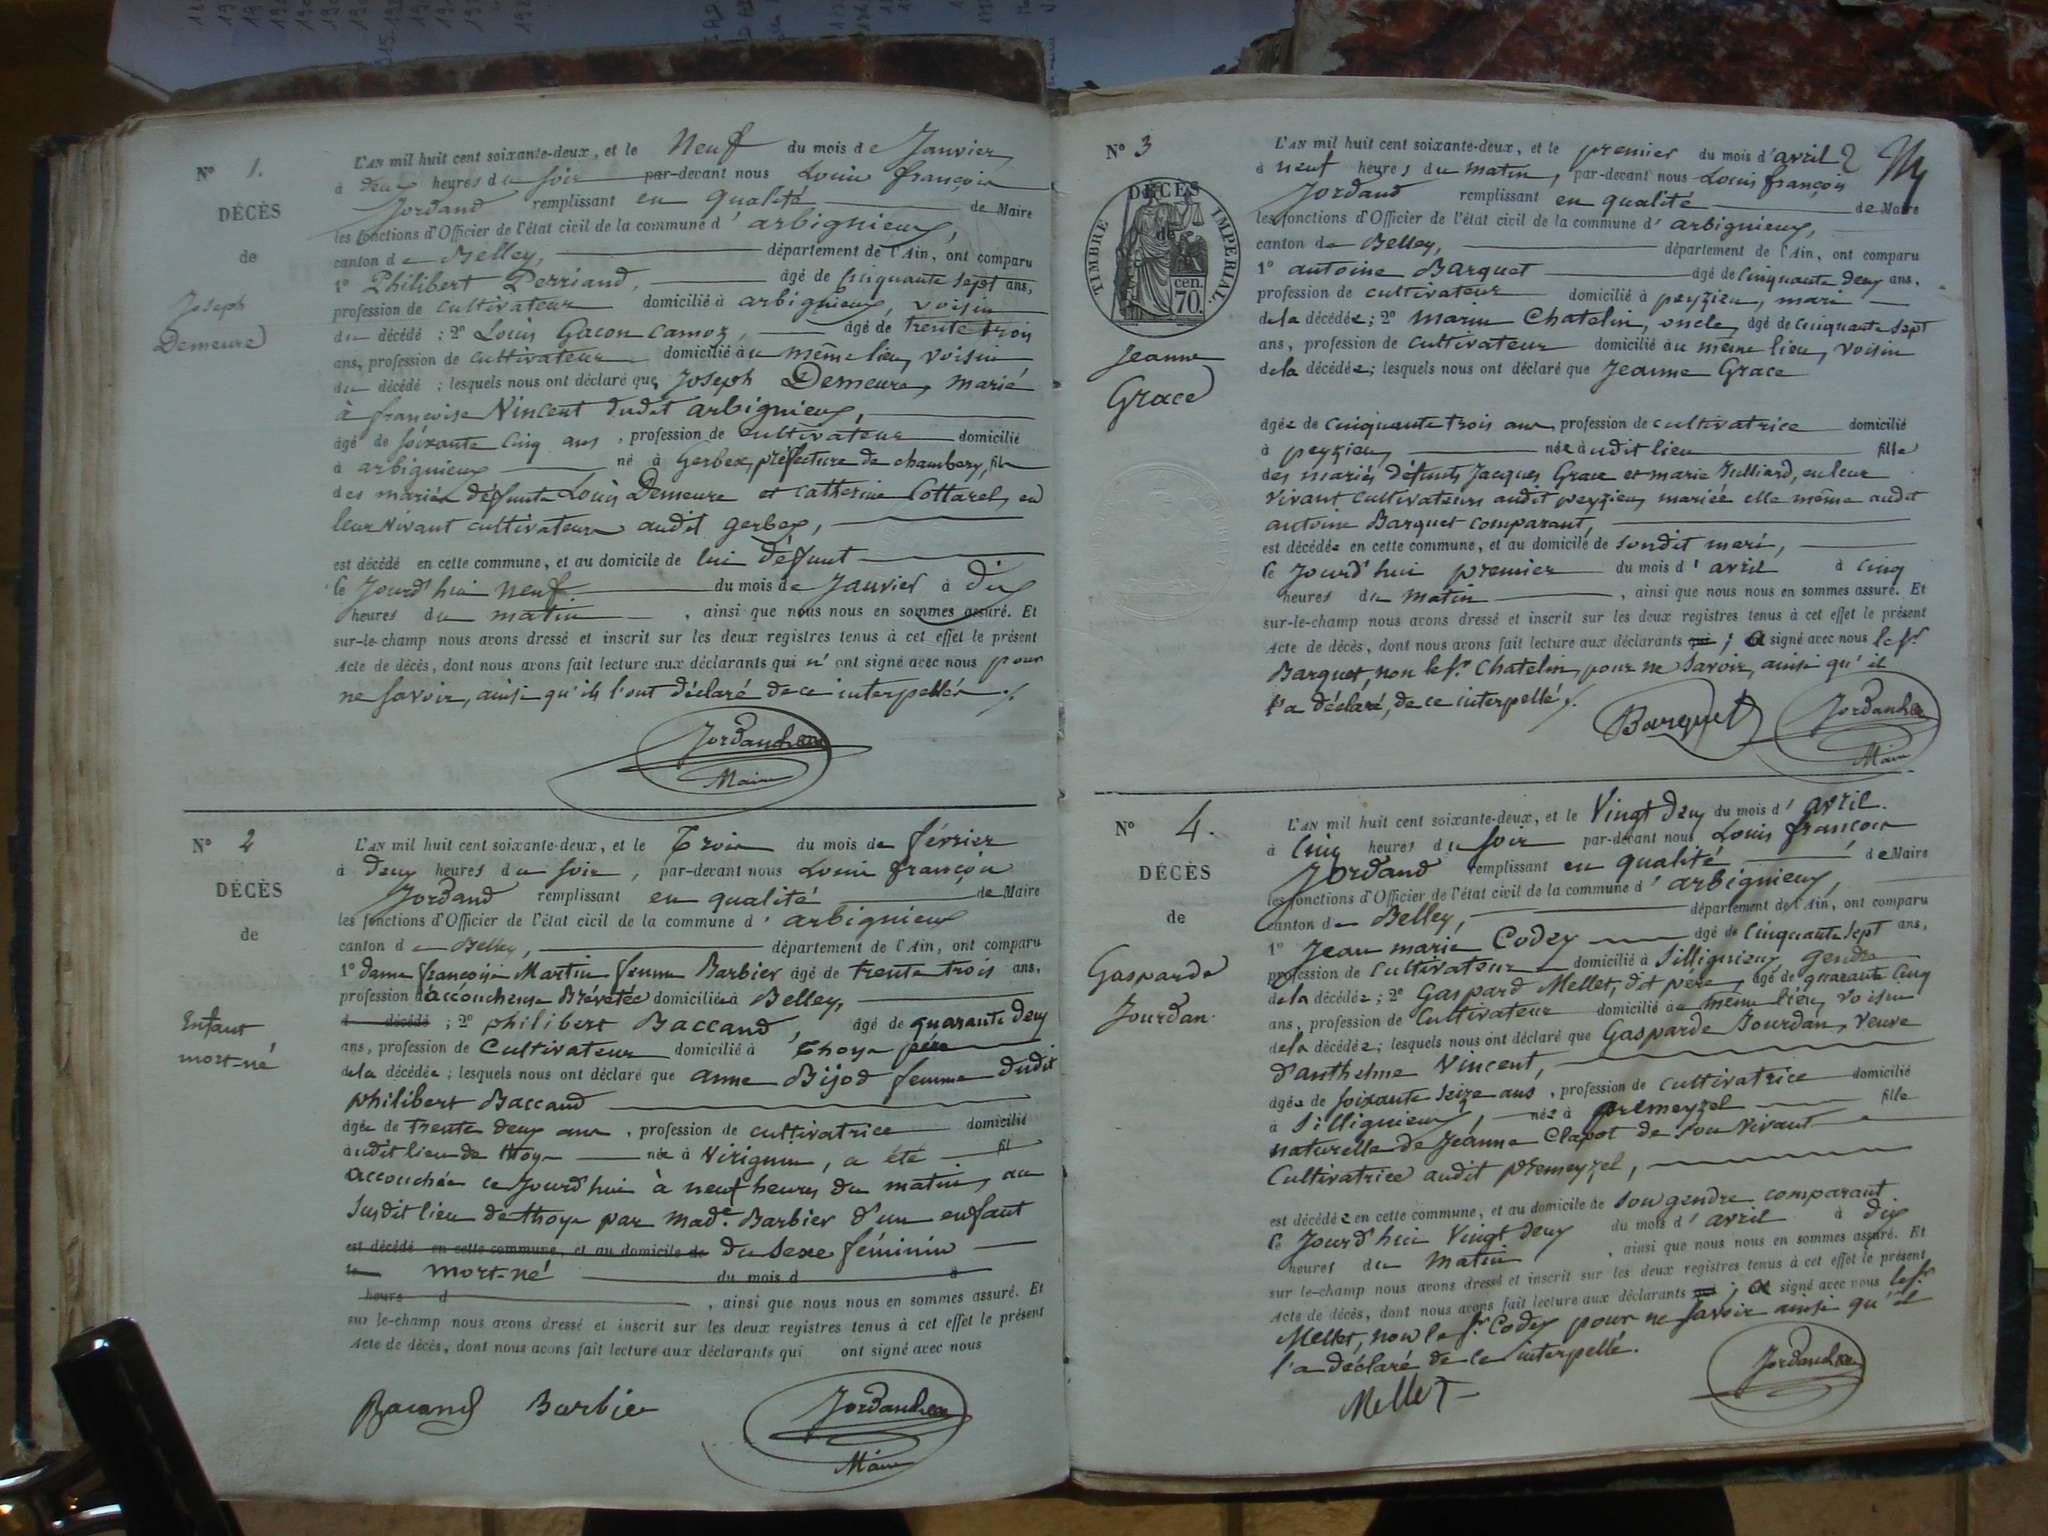 N° 1.
DÉCÈS
de
Joseph
Demeure
L'AN mil huit cent soixante-deux, et le Neuf du mois de Janvier
à deux heures du soir par-devant nous Louis françois
Jordand remplissant en qualité de Maire
les fonctions d'Officier de l'état civil de la commune d'arbignieux,
canton de Belley, département de l'Ain, ont comparu
1° Philibert Perriand, âgé de cinquante sept ans,
profession de cultivateur domicilié à arbignieux, voisin
du décédé : 2° Louis Gacon Camoz, âgé de trente trois
ans, profession de cultivateur domicilié au même lieu, voisin
du décédé ; lesquels nous ont déclaré que Joseph Demeure, marié
à françoise Vincent dudit arbignieux,
âgé de soixante cinq ans, profession de cultivateur domicilié
à arbignieux né à Gerbex, préfecture de chambery, fils
des mariés défunts Louis Demeure et Catherine Cottarel, en
leur vivant cultivateurs audit gerbex,
est décédé en cette commune, et au domicile de lui défunt
le Jourd'hui neuf du mois de Janvier à dix
heures du matin, ainsi que nous nous en sommes assuré. Et
sur-le-champ nous avons dressé et inscrit sur les deux registres tenus à cet effet le présent
Acte de décès, dont nous avons fait lecture aux déclarants qui n'ont signé avec nous pour
ne savoir, ainsi qu'ils l'ont déclaré de ce interpellés
Maire
N° 2
DÉCÈS
de
Enfant
mort-né
L'AN mil huit cent soixante-deux, et le Trois du mois de février
à deux heures du soir, par-devant nous Louis françois
Jordand remplissant en qualité de Maire
les fonctions d'Officier de l'état civil de la commune d'arbignieux
canton de Belley, département de l'Ain, ont comparu
1° dame françoise Martin femme Barbier âgé de trente trois ans,
profession d'accoucheuse Brévetée domiciliée à Belley,
d décédé ; 2° philibert Baccand, âgé de quarante deux
ans, profession de Cultivateur domicilié à Thoys père
de la décédée ; lesquels nous ont déclaré que anne Bijod femme dudit
philibert Baccand
âgée de trente deux ans, profession de cultivatrice domicilié
audit lieu de thoys née à Virignin, a été fil
accouchée ce Jourd'hui à neuf heures du matin, au
susdit lieu de thoys par made. Barbier d'un enfant
est décédé en cette commune, et au domicile de du sexe féminin
le mort-né du mois d à
heures d, ainsi que nous nous en sommes assuré. Et
sur-le-champ nous avons dressé et inscrit sur les deux registres tenus à cet effet le présent
Acte de décès, dont nous avons fait lecture aux déclarants qui ont signé avec nous
Bacand Barbier
Maire
N° 3
DÉCÈS
de
TIMBRE IMPÉRIAL.
cen.
70.
Jeanne
Grace
L'AN mil huit cent soixante-deux, et le premier du mois d'avril
à neuf heures du matin, par-devant nous Louis françois
Jordand remplissant en qualité de Maire
les fonctions d'Officier de l'état civil de la commune d'arbignieux,
canton de Belley, département de l'Ain, ont comparu
1° antoine Barquet âgé de cinquante deux ans,
profession de cultivateur domicilié à peyzieu, mari
de la décédée ; 2° marin Chatelin, oncle, âgé de cinquante sept
ans, profession de cultivateur domicilié au même lieu, voisin
de la décédée ; lesquels nous ont déclaré que Jeanne Grace
âgée de cinquante trois ans, profession de cultivatrice domicilié
à peyzieu née audit lieu fille
des mariés défunts Jacques Grace et marie Julliard, en leur
vivant cultivateurs audit peyzieu, mariée elle même audit
antoine Barquet comparant,
est décédée en cette commune, et au domicile de sondit mari,
le Jourd'hui premier du mois d'avril à cinq
heures du matin, ainsi que nous nous en sommes assuré. Et
sur-le-champ nous avons dressé et inscrit sur les deux registres tenus à cet effet le présent
Acte de décès, dont nous avons fait lecture aux déclarants qui ; a signé avec nous le sr
Barquet, non le sr. Chatelin, pour ne savoir, ainsi qu'il
l'a déclaré, de ce interpellé
Barquet
Maire
N° 4.
DÉCÈS
de
Gasparde
Jourdan
L'AN mil huit cent soixante-deux, et le Vingt deux du mois d'avril
à cinq heures du soir par-devant nous Louis françois
Jordand remplissant en qualité de Maire
les fonctions d'Officier de l'état civil de la commune d'arbignieux,
canton de Belley, département de l'Ain, ont comparu
1° Jean marie Codex âgé de cinquante sept ans,
profession de cultivateur domicilié à Silligneux, gendre
de la décédée ; 2° Gaspard Mellet, dit père, âgé de quarante cinq
ans, profession de cultivateur domicilié au même lieu, voisin
de la décédée ; lesquels nous ont déclaré que Gasparde Jourdan, veuve
d'anthelme Vincent,
âgée de soixante seize ans, profession de cultivatrice domicilié
à Sillignieux, née à premeyzel fille
naturelle de Jeanne Clapot de son vivant
Cultivatrice audit premeyzel,
est décédée en cette commune, et au domicile de son gendre comparant
le Jourd'hui Vingt deux du mois d'avril à dix
heures du matin, ainsi que nous nous en sommes assuré. Et
sur-le-champ nous avons dressé et inscrit sur les deux registres tenus à cet effet le présent
Acte de décès, dont nous avons fait lecture aux déclarants qui ; a signé avec nous le sr
Mellet, non le sr. Codex pour ne savoir ainsi qu'il
l'a déclaré de ce interpellé.
Mellet